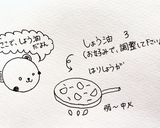 ここで、しょう油
だよ。
しょう油 3
(お好みで、調整して下さい)
はりしょうが
弱〜中火